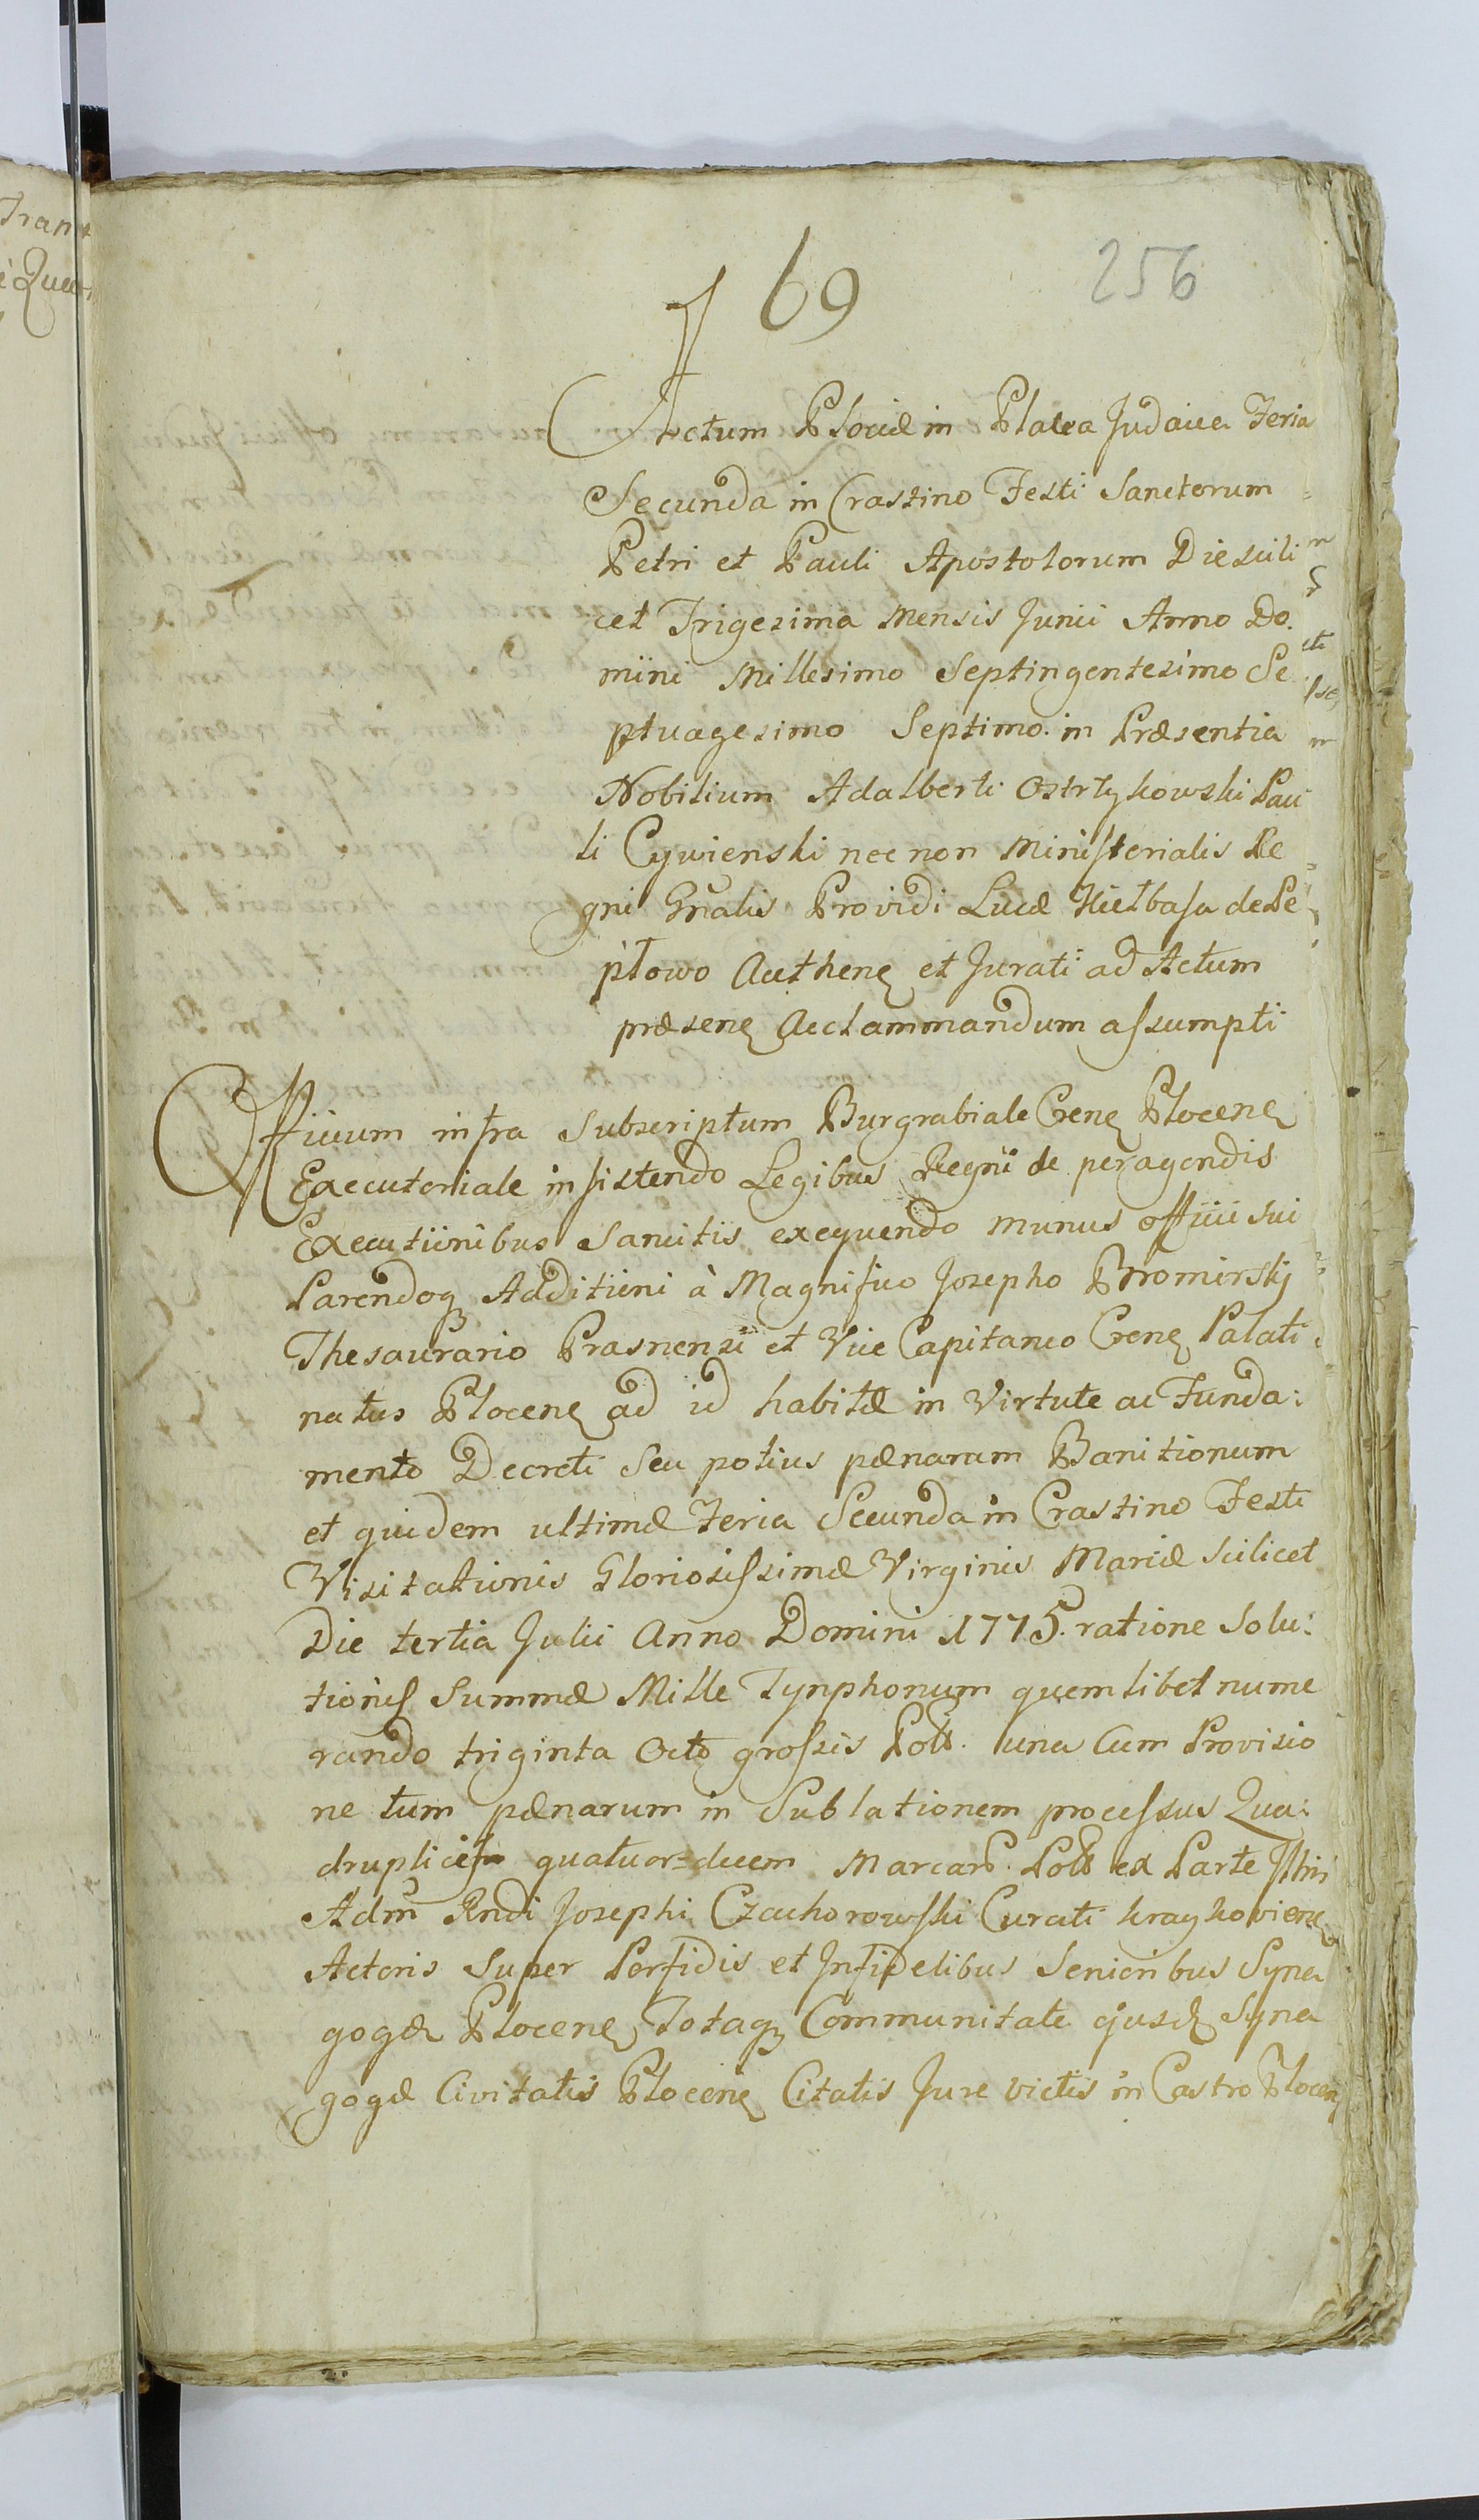 69
256
Actum Plociæ in Platea Judaica Feria
Secunda in Crastino Festi Sanctorum
Petri et Pauli Apostolorum Die scili
cet Trigesima Mensis Junii Anno Do.
mini Millesimo Septingentesimo Se
ptuagesimo Septimo. in Præsentia
Nobilium Adalberti Ostrzykowski Pau
li Cywienski nec non Ministerialis Re
gni Gnalis Providi Lucæ Kiełbasa de Pe
płowo Authen et Jurati ad Actum
præsen Acclammandum assumpti
Officium infra Subscriptum Burgrabiale Cren Plocen
Executoriale insistendo Legibus Regni de peragendis
Executionibus Sancitis exequendo munus officii sui
Parendoq Additioni à Magnifico Josepho Bromirski
Thesaurario Prasnensi et Vice Capitaneo Cren Palati
natus Plocen ad id habitæ in Virtute ac Funda:
mento Decreti Seu potius pænarum Banitionum
et quidem ultimæ Feria Secunda in Crastino Festi
Visitationis Gloriosissimæ Virginis Mariæ Scilicet
Die tertia Julii Anno Domini 1775. ratione Solu:
tionis Summæ Mille Tynphonum quemlibet nume
rando triginta Octo grossis Poll. una Cum Provisio
ne tum pænarum in Sublationem processus Qua:
druplicis quatuor=decem Marcar. Poll ex Parte Illris
Adm Rndi Josephi Czachorowski Curati Kraykovien
Actoris Super Perfidis et Infidelibus Senioribus Syna
gogæ Plocen Totaq Communitate ejusd Syna
gogæ Civitatis Plocen Citatis Jure victis in Castro Plocen